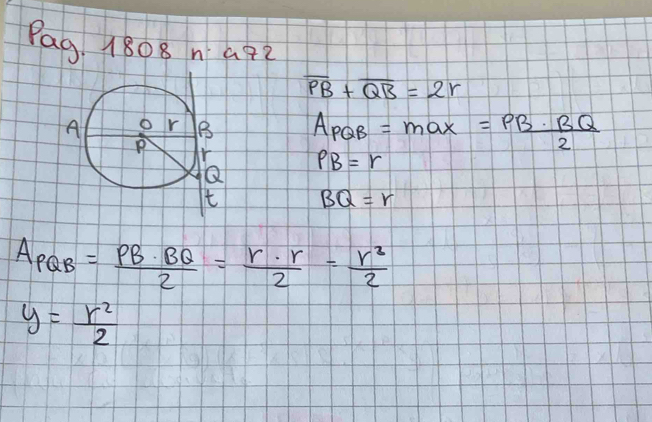 Pag. 1808 n. 472
A O r B
P r
Q
t
PB + QB = 2r
A_PQB = max = PB · BQ / 2
PB = r
BQ = r
A_PQB = PB · BQ / 2 = r · r / 2 = r² / 2
y = r² / 2